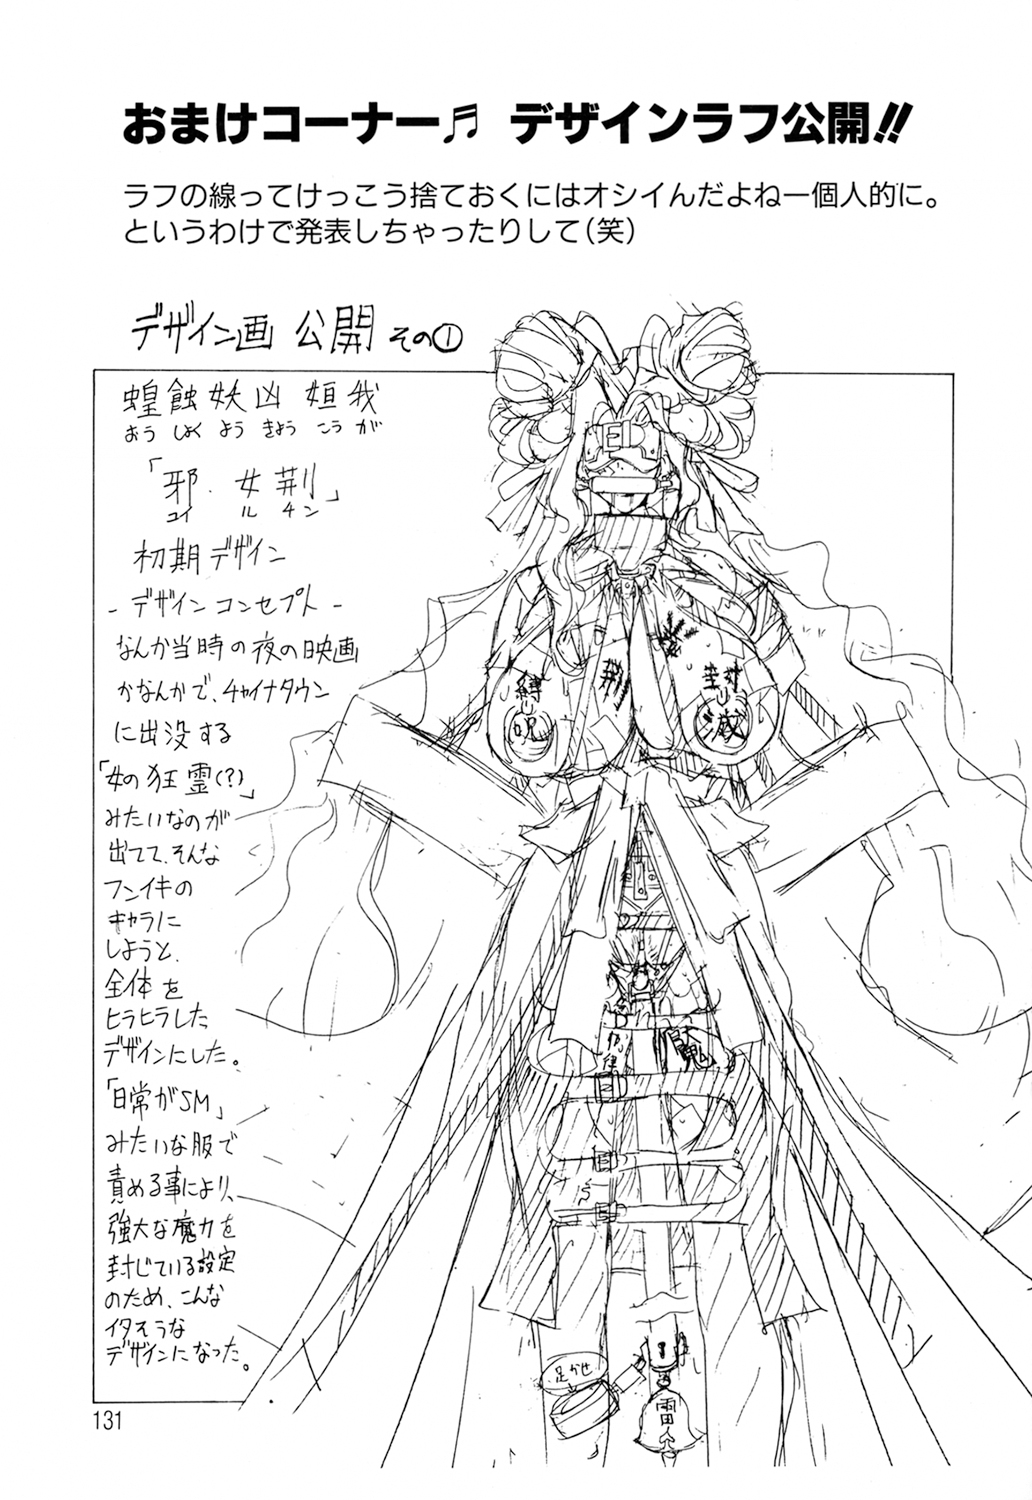 おまけコーナー♬ デザインラフ公開!!
ラフの線ってけっこう捨ておくにはオシイんだよねー個人的に。
というわけで発表しちゃったりして(笑)
デザイン画 公開 その①
蝗蝕妖凶 姮我
おう しょく よう きょう こう が
「邪・女荊」
ユイ ルチン
初期デザイン
- デザインコンセプト -
なんか当時の夜の映画
かなんかで、チャイナタウン
に出没する
「女の狂霊(?)」
みたいなのが
出てて、そんな
フンイキの
キャラに
しようと、
全体を
ヒラヒラした
デザインにした。
「日常がSM」
みたいな服で
責める事により、
強大な魔力を
封じている設定
のため、こんな
イタそうな
デザインになった。
縛
呪
荊
封
滅
魔
足かせ
雷
131